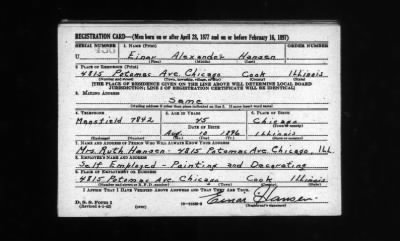 REGISTRATION CARD—(Men born on or after April 28, 1877 and on or before February 16, 1897)
SERIAL NUMBER 1. NAME (Print) ORDER NUMBER
Einar Alexander Hansen
2. PLACE OF RESIDENCE (Print)
4815 Potomac Ave. Chicago Cook Illinois
(Number and street) (Town, township, village, or city) (County) (State)
[THE PLACE OF RESIDENCE GIVEN ON THE LINE ABOVE WILL DETERMINE LOCAL BOARD
JURISDICTION; LINE 2 OF REGISTRATION CERTIFICATE WILL BE IDENTICAL]
3. MAILING ADDRESS
Same
[Mailing address if other than place indicated on line 2. If same insert word same]
4. TELEPHONE 5. AGE IN YEARS 6. PLACE OF BIRTH
Mansfield 7842 45 Chicago
DATE OF BIRTH (Town or county)
Aug. 10 1896 Illinois
(Exchange) (Number) (Mo.) (Day) (Yr.) (State or country)
7. NAME AND ADDRESS OF PERSON WHO WILL ALWAYS KNOW YOUR ADDRESS
Mrs. Ruth Hansen- 4815 Potomac Ave Chicago, Ill.
8. EMPLOYER'S NAME AND ADDRESS
Self Employed - Painting and Decorating
9. PLACE OF EMPLOYMENT OR BUSINESS
4815 Potomac Ave. Chicago Cook Illinois
(Number and street or R. F. D. number) (Town) (County) (State)
I AFFIRM THAT I HAVE VERIFIED ABOVE ANSWERS AND THAT THEY ARE TRUE.
D. S. S. Form 1 Einar Hansen
(Revised 4-1-42) (Registrant's signature)